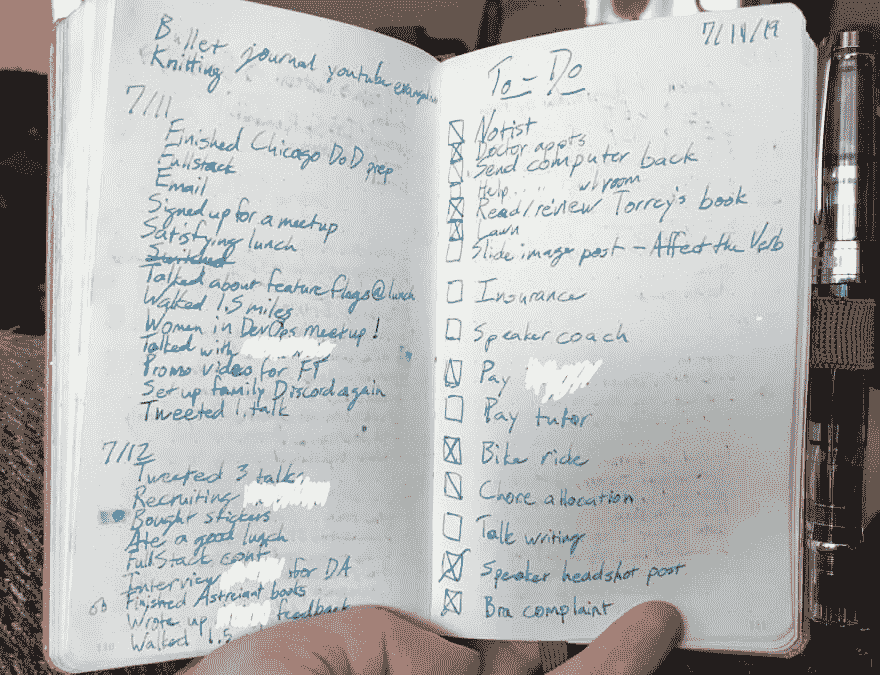 Bullet journal youtube
Knitting
7/11
Finished Chicago DoD prep
Fullstack
Email
Signed up for a meetup
Satisfying lunch
Switched
Talked about feature flags@lunch
Walked 1.5 miles
Women in DevOps meetup!
Talked with
Promo video for FT
Set up family Discord again
Tweeted 1 talk
7/12
Tweeted 3 talks
Recruiting
Bought stickers
Ate a good lunch
FullStack conf
Interview for DA
Finished Astreiant books
Wrote up feedback
Walked 1.5
110
7/14/19
To-Do
Notist
Doctor appts
Send computer back
Help... w/ room
Read/review Torrey's book
Lawn
Slide image post - Affect the Verb
Insurance
Speaker coach
Pay
Pay tutor
Bike ride
Chore allocation
Talk writing
Speaker headshot post
Bra complaint
111